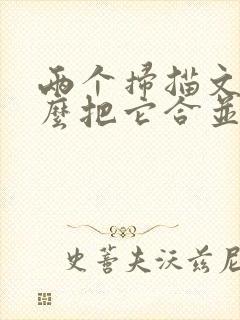 两个掃描文
麼把它合並
史蒂夫沃兹尼